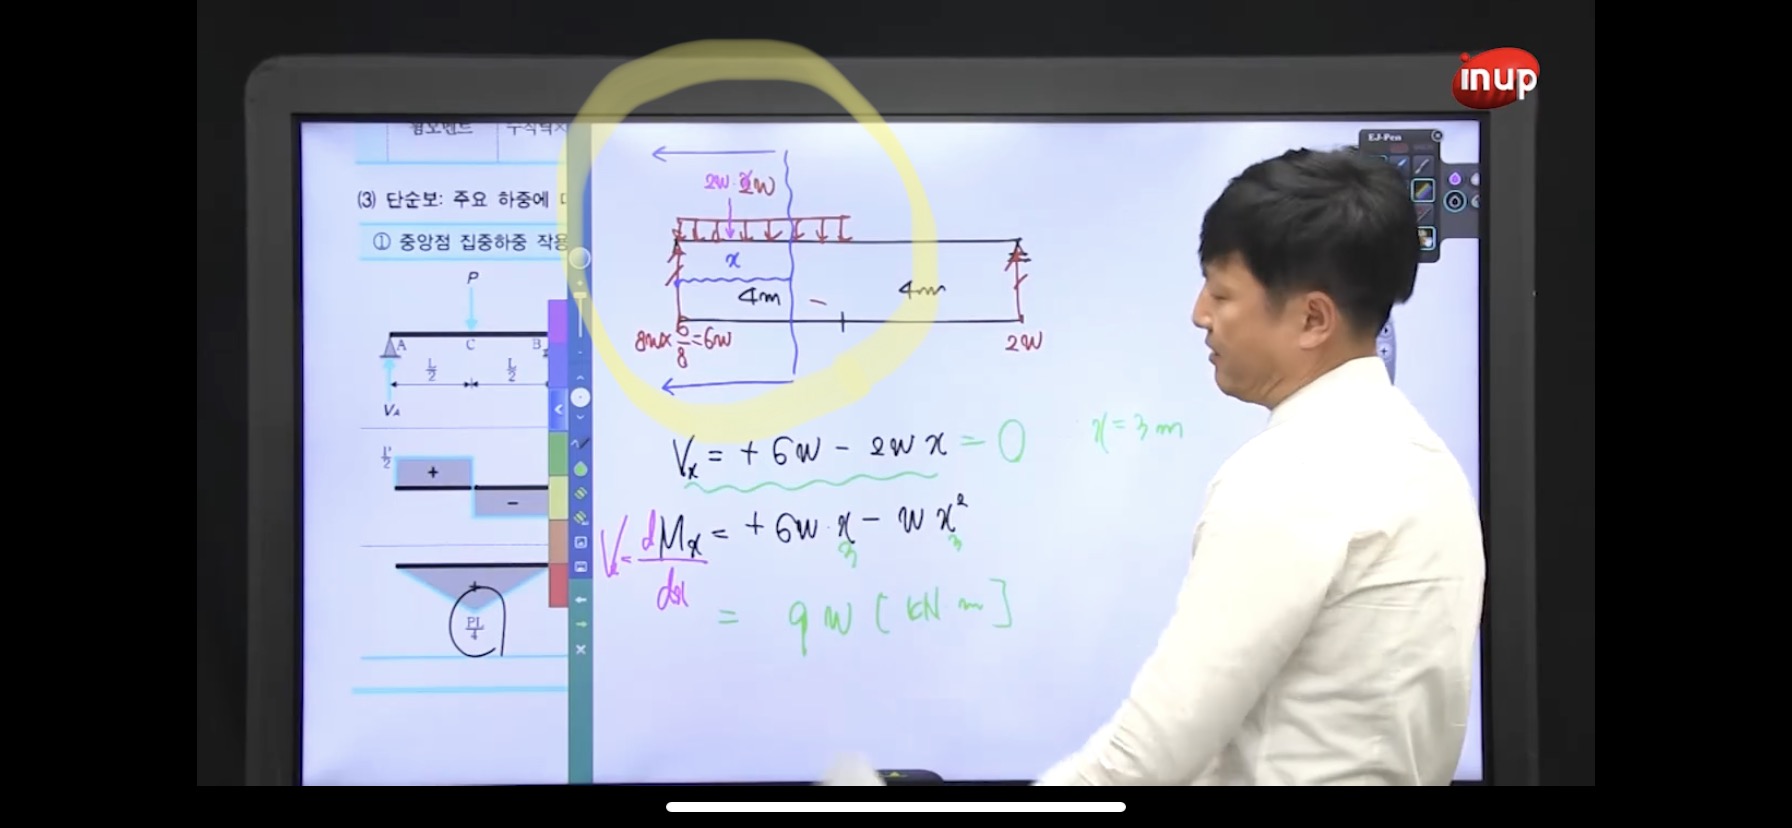 inup
EJ-Pen
휨모멘트
(3) 단순보: 주요 하중에
① 중앙점 집중하중 작용
P
A C B
L/2 L/2
VA
+
−
+
PL/4
2W 2W
x
4m 4m
8W× 6/8 =6W
2W
Vx = + 6W − 2W x = 0
x = 3m
V = dMx/dx = + 6W · x − W x²
3 3
= 9W [kN m]